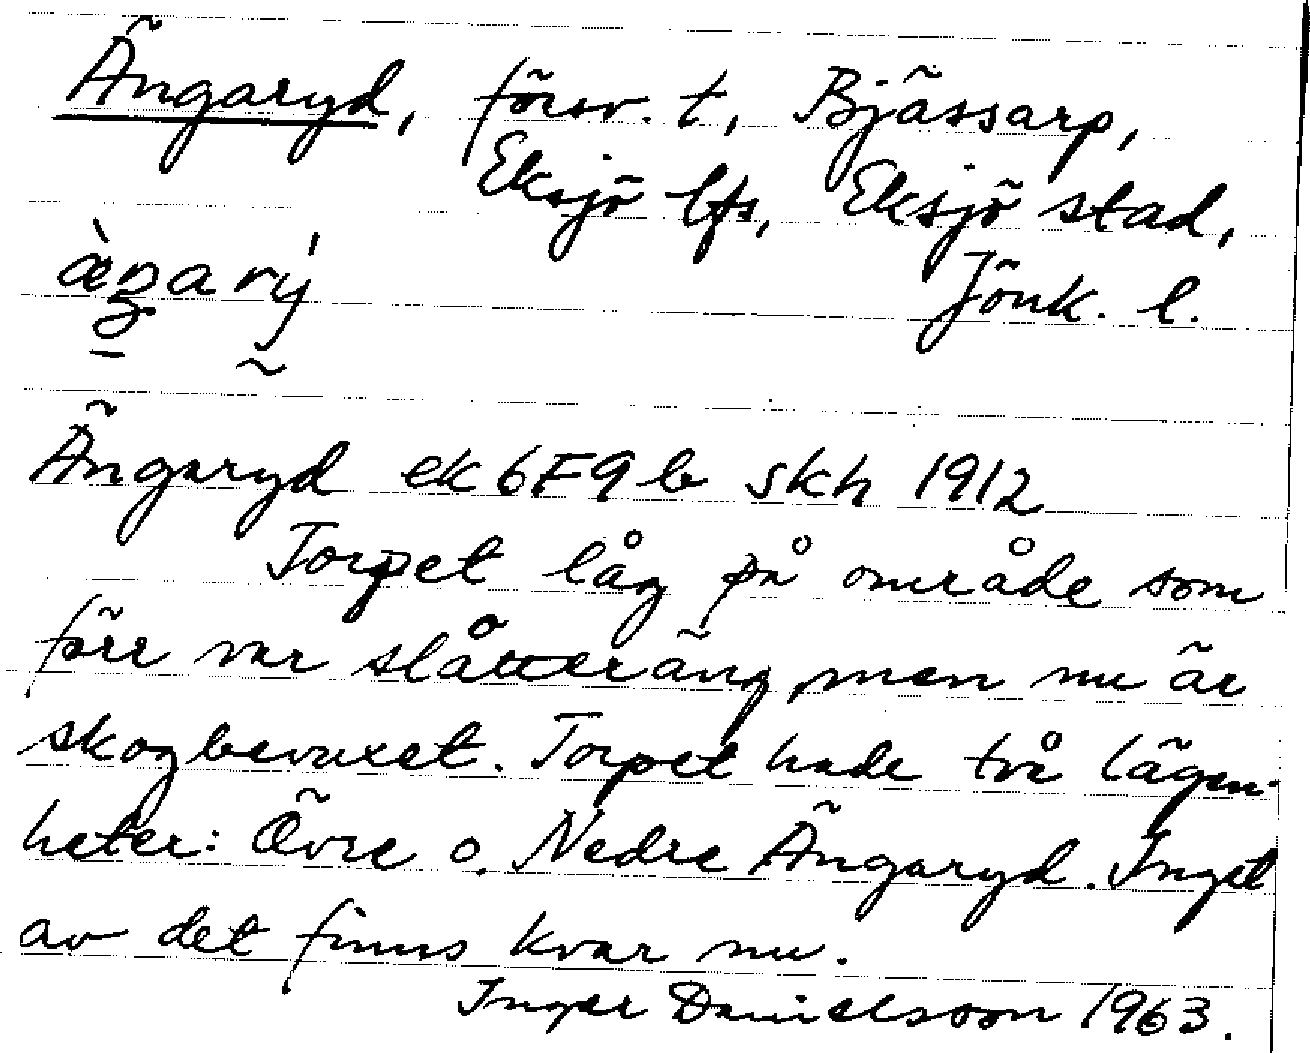 Ängaryd, försv. t, Bjässarp,
Eksjö lfs, Eksjö stad,
Jönk. l.
Ängaryd ek 6F9b skh 1912
Torpet låg på område som
förr var slåtteräng, men nu är
skogbevuxet. Torpet hade två lägen-
heter: Övre o. Nedre Ängaryd. Inget
av det finns kvar nu.
Inger Danielsson 1963.